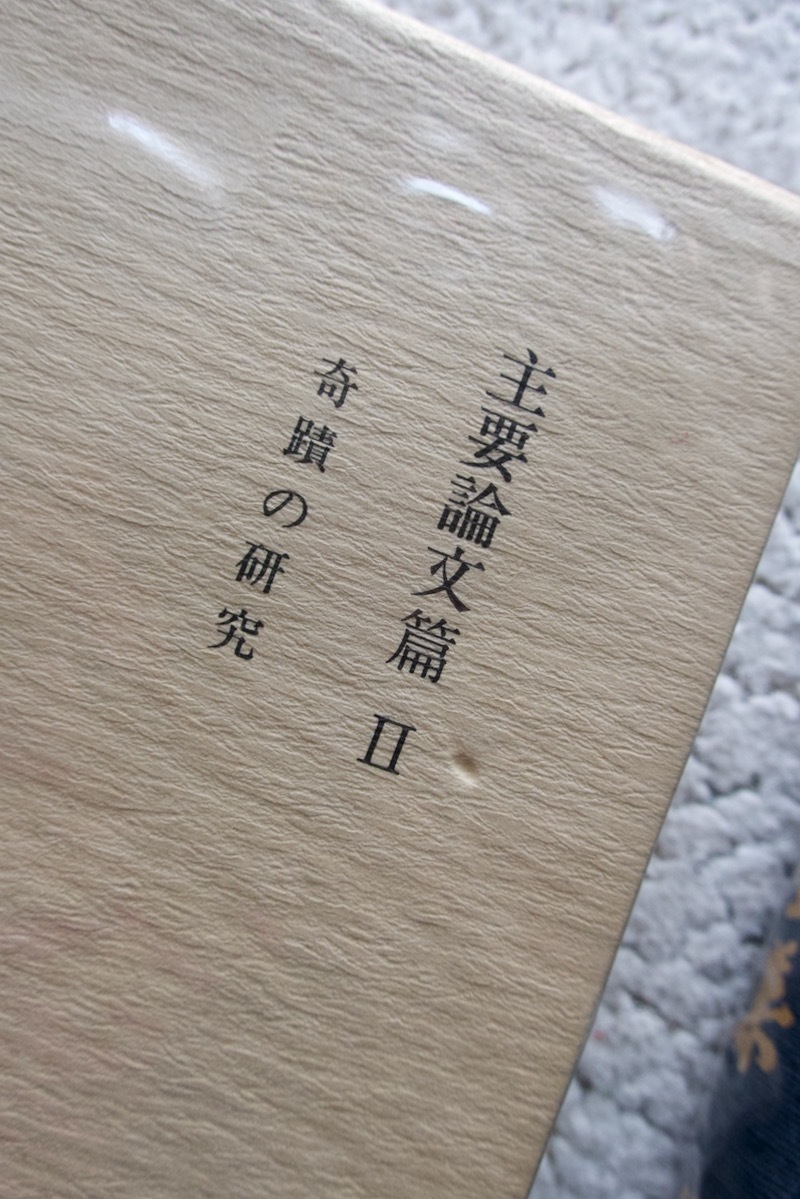 主要論文篇 II
奇蹟の研究